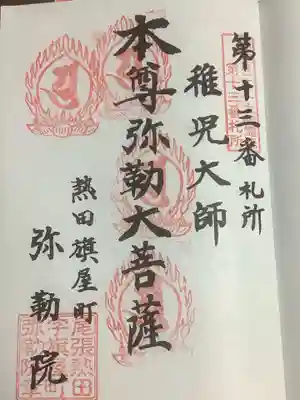 第十三番札所
稚児大師
本尊弥勒大菩薩
熱田旗屋町
弥勒院
尾張熱田
字旗屋町
弥勒院章